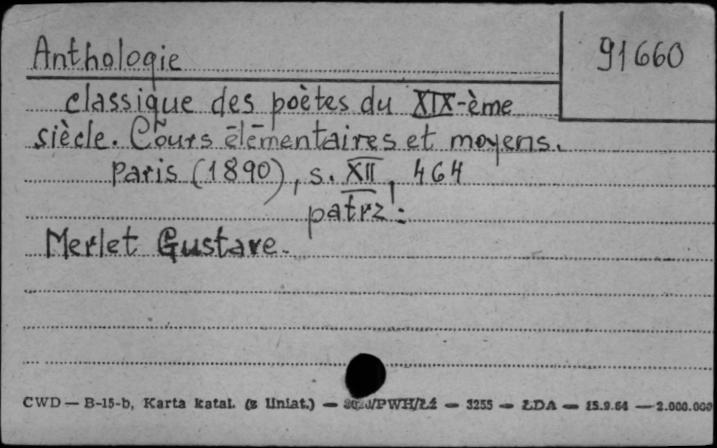 Anthologie
91660
classique des poètes du XIX-ème
siècle. Cours élémentaires et moyens.
Paris (1890), s. XII, 464
patrz:
Merlet Gustave.
CWD — B-15-b, Karta katal. (z liniat.) — /PWH/Łż — 3255 — ŁDA — 15.9.64 — 2.000.000